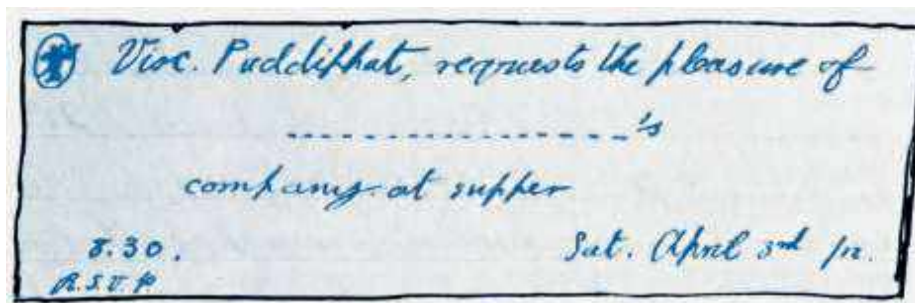 Visc. Puddiphat, requests the pleasure of
-----------------'s
company at supper
8.30. Sat. April 3rd
R.S.V.P.